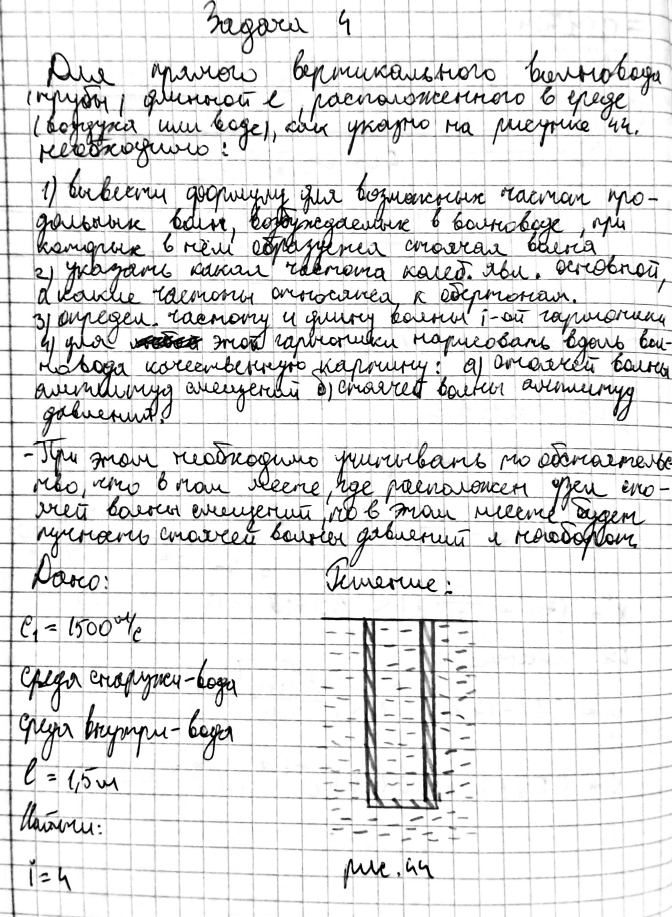 Задача 4
Для прямого вертикального волновода
(трубы) длинной ℓ, расположенного в среде
(воздуха или воде), как указно на рисунке 44.
необходимо:
1) вывести формулу для возможных частот про-
дольных волн, возбуждаемых в волноводе, при
которых в нём образуется стоячая волна
2) указать какая частота колеб. явл. основной,
а какие частоты относятся к обертонам.
3) определ. частоту и длину волны i-ой гармоники
4) для этой гармоники нарисовать вдоль вол-
новода качественную картину: а) стоячей волны
амплитуд смещений б) стоячей волны амплитуд
давлений.
- При этом необходимо учитывать то обстоятельс
тво, что в том месте, где расположен узел сто-
ячей волны смещений, то в этом месте будет
пучность стоячей волны давлений и наоборот.
Дано: Решение:
c₁ = 1500 м/с
среда снаружи - вода
среда внутри - вода
ℓ = 1,5 м
Найти:
i = 4
рис. 44